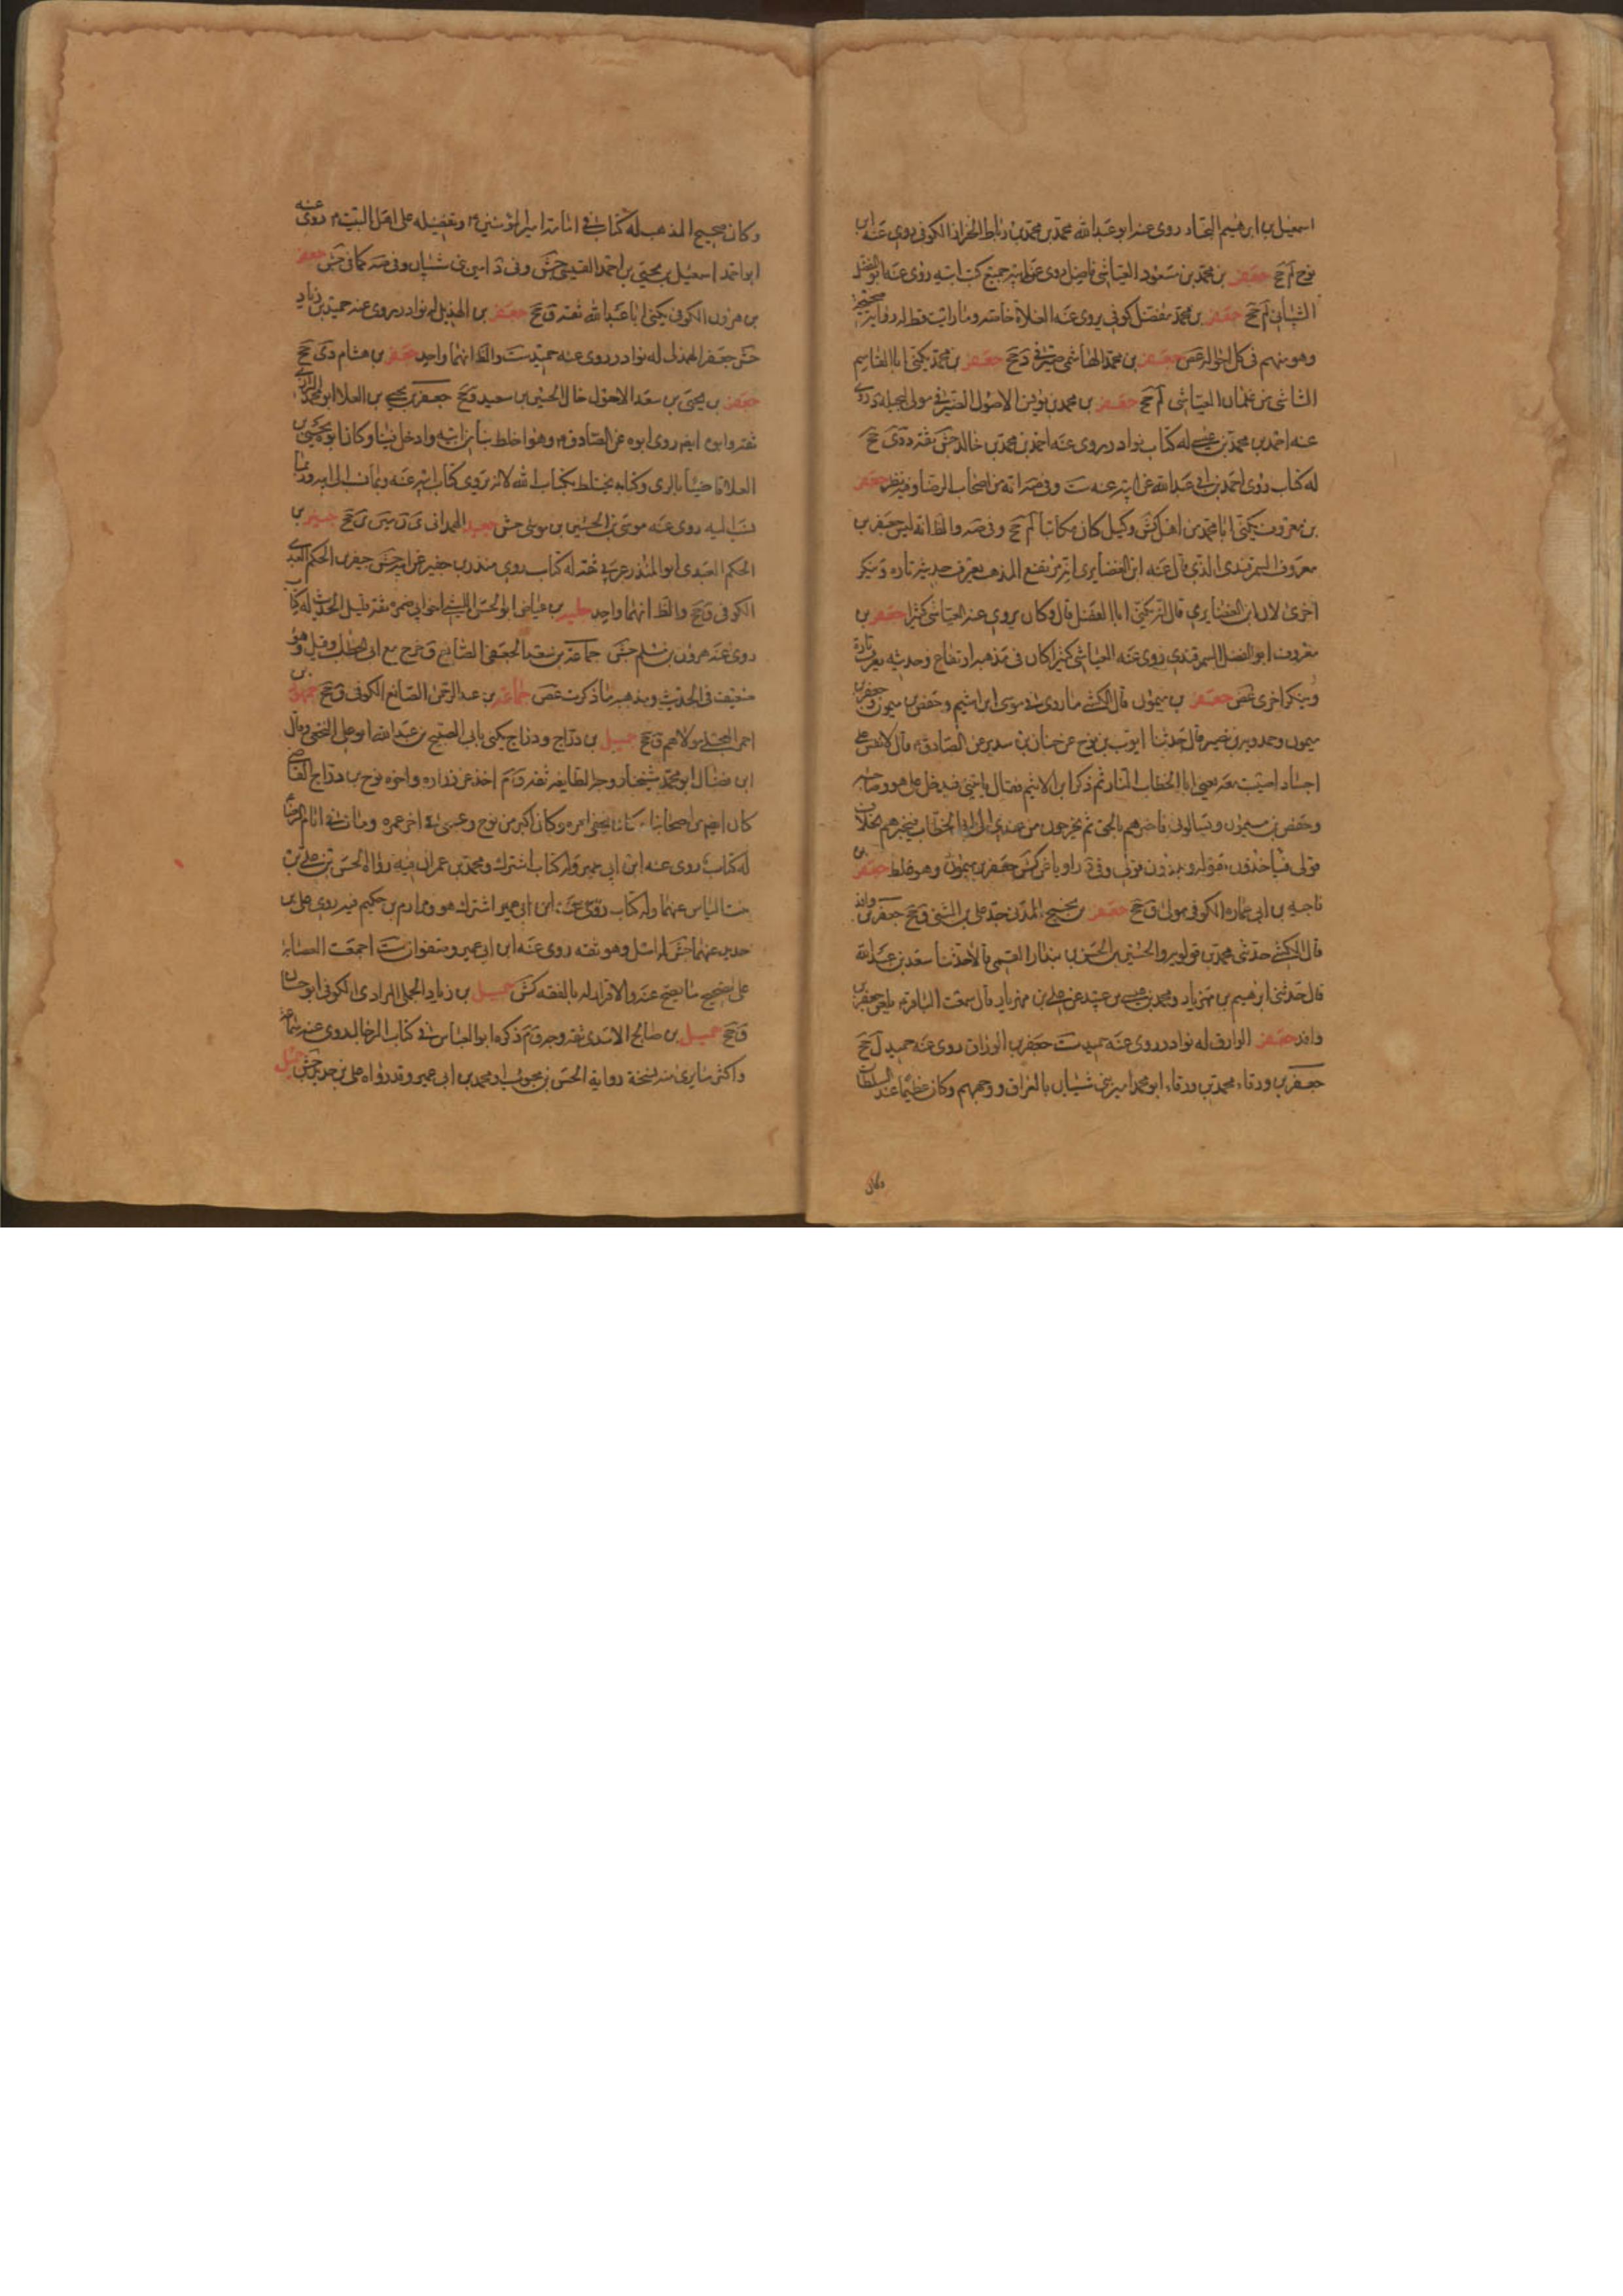 اسمعيل بن ابرهيم النجاد روى عنه ابو عبد الله محمد بن محمد بن رباط الخزاز الكوفي روى عنه ابن
نوح لم جخ جعفر بن محمد بن مسعود العياشي فاضل روى عن ابيه جميع كتب ابيه روى عنه ابو المفضل
الشيباني لم جخ جعفر بن محمد مفضل كوفي يروى عنه الغلاة خاصه وما رايت قط له رواية صحيحة
وهو متهم في كل احواله غض جعفر بن محمد الهاشمي دي جخ جعفر بن محمد يكنى ابا القاسم
الشاشي من غلمان العياشي لم جخ جعفر بن محمد بن يونس الاحول الصيرفي مولى بجيلة روى
عنه احمد بن محمد بن عيسى له كتاب نوادر روى عنه احمد بن محمد بن خالد جش ثقه د دي جخ
له كتاب روى احمد بن ابي عبد الله عن ابيه عنه ست وفي صه انه من اصحاب الرضا وفيه نظر جعفر
بن معروف يكنى ابا محمد من اهل كش وكيل كان مكاتبا لم جخ وفي صه والظ انه ليس جعفر بن
معروف السمرقندي الذي قال عنه ابن الغضايري انه مرتفع المذهب يعرف حديثه تاره وينكر
اخرى لان ابن الغضايري قال انه يكنى ابا الفضل قال وكان يروي عنه العياشي كثيرا جعفر بن
معروف ابو الفضل السمرقندي روى عنه العياشي كثيرا كان في مذهبه ارتفاع وحديثه يعرف تارة
وينكر اخرى غض جعفر بن ميمون قال الكشي ما روى في موسى ابن اشيم وحفص بن ميمون وجعفر بن
ميمون حمدويه بن نصير قال حدثنا ايوب بن نوح عن حنان بن سدير عن الصادق ع قال لانفس على
اجساد اصيبت معه يعني ابا الخطاب النار ثم ذكر ابن الاشيم فقال ياتيني فيدخل علي هو وصاحبه
وحفص بن ميمون ويسالوني فاخبرهم بالحق ثم يخرجون من عندي الى ابي الخطاب فيخبرهم بخلاف
قولي فياخذون بقوله ويذرون قولي وفي د راويا عن كش جعفر بن ميمون وهو غلط جعفر بن
ناجيه بن ابي عماره الكوفي مولى ق جخ جعفر بن نجيح المدني جد علي بن المديني ق جخ جعفر بن واقد
قال الكشي حدثني محمد بن قولويه والحسين بن الحسن بن بندار القمي قالا حدثنا سعد بن عبد الله
قال حدثني ابرهيم بن مهزيار ومحمد بن عيسى بن عبيد عن علي بن مهزيار قال سمعت الباقر ع يلعن جعفر بن
واقد جعفر الوراق له نوادر روى عنه حميد ست جعفر بن الوراق روى عنه حميد ل جخ
جعفر بن ورقاء محمد بن ورقاء ابو محمد امير بني شيبان بالعراق ووجههم وكان عظيما عند السلطان
وكان
وكان صحيح المذهب له كتاب في امامة امير المؤمنين ع وتفضيله على اهل البيت ع روى عنه
ابو احمد اسمعيل بن يحيى بن احمد العبسي جش وفي د امير بني شيبان وفي صه كما في جش جعفر
بن هرون الكوفي يكنى ابا عبد الله ثقه ق جخ جعفر بن الهذيل له نوادر روى عنه حميد بن زياد
جش جعفر الهذلي له نوادر روى عنه حميد ست والظ انهما واحد جعفر بن هشام دي جخ
جعفر بن يحيى بن سعد الاحول خال الحسين بن سعيد د جخ جعفر بن يحيى بن العلا ابو محمد الرازي
ثقه وابوه ايضا روى ابوه عن الصادق ع وهو اخلط بنا من ابيه وادخل فينا وكان ابوه يحيى بن
العلا قاضيا بالري وكتابه يختلط بكتاب ابيه لانه يروي كتاب ابيه عنه وربما نسب الى ابيه وربما
نسب اليه روى عنه موسى بن الحسين بن موسى جش جعيد الهمداني ي ن سين ين جخ جيفر بن
الحكم العبدي ابو المنذر عربي ثقه له كتاب روى منذر بن جيفر عن ابيه جش جيفر بن الحكم العبدي
الكوفي ق جخ والظ انهما واحد جلبة بن عياض ابو الحسن الليثي اخو ابي ضمره ثقه قليل الحديث له كتاب
روى عنه هرون بن مسلم جش جماعة بن سعد الجعفي الصايغ ق خرج مع ابي الخطاب وقتل وهو
ضعيف في الحديث ومذهبه ما ذكرت غض جماعة بن عبد الرحمن الصائغ الكوفي ق جخ
احمر العجلي مولاهم ق جخ جميل بن دراج ودراج يكنى بابي الصبيح بن عبد الله ابو علي النخعي وقال
ابن فضال ابو محمد شيخنا ووجه الطايفه ثقه ق م اخذ عن زراره واخوه نوح بن دراج القاضي
كان ايضا من اصحابنا وكان يخفي امره وكان اكبر من نوح وعمي في اخر عمره ومات في ايام الرضا ع
له كتاب روى عنه ابن ابي عمير وله كتاب اشترك ومحمد بن عمران فيه رواه الحسن بن علي بن
بنت الياس عنهما وله كتاب روى عنه ابن ابي عمير اشترك هو ومرازم بن حكيم فيه روى علي بن
حديد عنهما جش له اصل وهو ثقه روى عنه ابن ابي عمير وصفوان ست اجمعت العصابه
على تصحيح ما يصح عنه والاقرار له بالفقه كش جميل بن زياد الجملي المرادي الكوفي ابو حسان
ق جخ جميل بن صالح الاسدي ثقه وجه ق م ذكره ابو العباس في كتاب الرجال روى عنه سماعة
واكثر ما يرى منه نسخة رواية الحسن بن محبوب او محمد بن ابي عمير وقد رواه علي بن حديد جش جميل